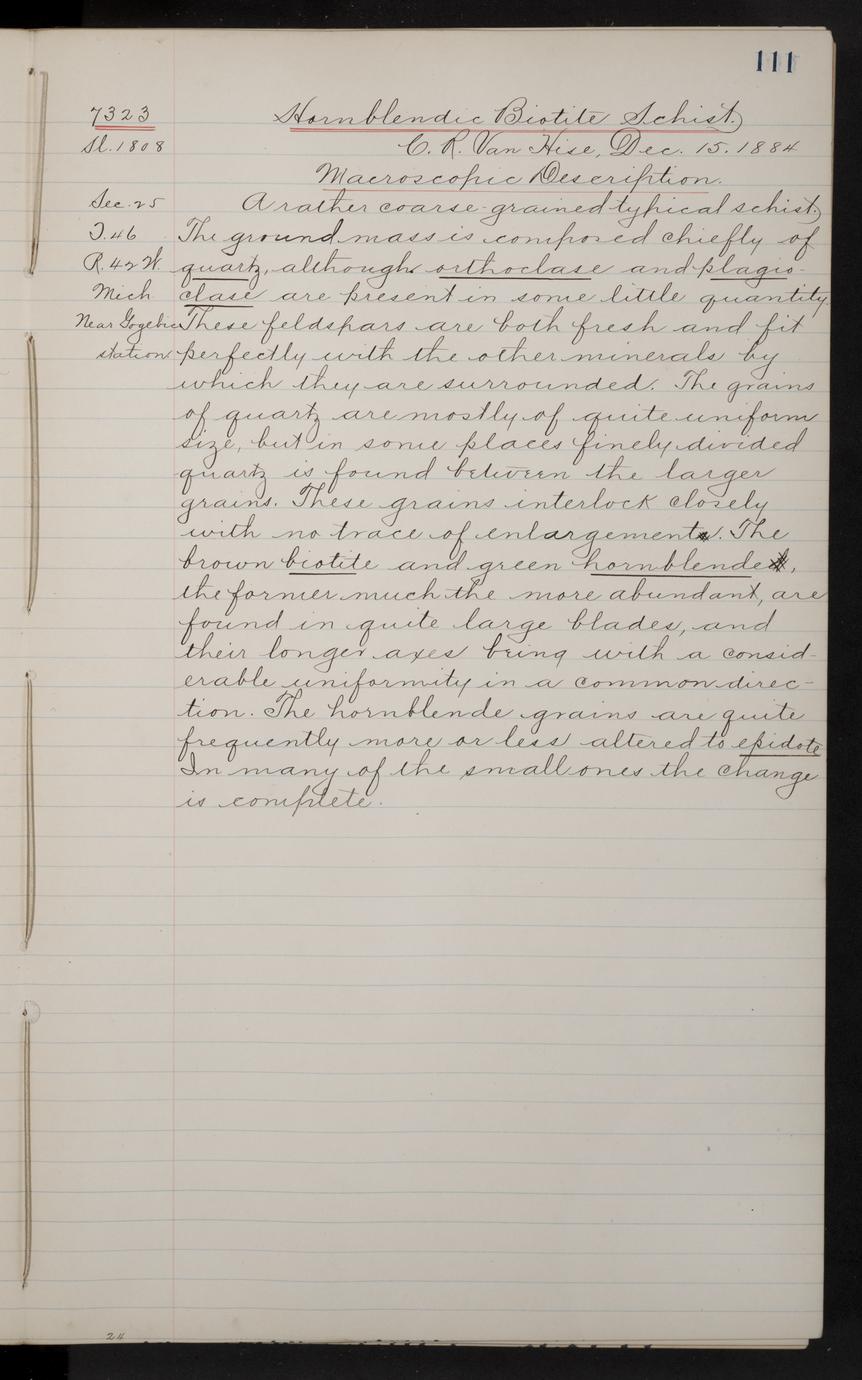 111
7323 Hornblendic Biotite Schist.
Sl. 1808 C. R. Van Hise, Dec. 15. 1884
Macroscopic Description.
Sec. 25 A rather coarse-grained typical schist.
T. 46 The ground mass is composed chiefly of
R. 42 W. quartz, although orthoclase and plagio-
Mich clase are present in some little quantity.
Near Gogebic These feldspars are both fresh and fit
station perfectly with the other minerals by
which they are surrounded. The grains
of quartz are mostly of quite uniform
size, but in some places finely divided
quartz is found between the larger
grains. These grains interlock closely
with no trace of enlargement. The
brown biotite and green hornblende,
the former much the more abundant, are
found in quite large blades, and
their longer axes being with a consid-
erable uniformity in a common direc-
tion. The hornblende grains are quite
frequently more or less altered to epidote
In many of the small ones the change
is complete.
24